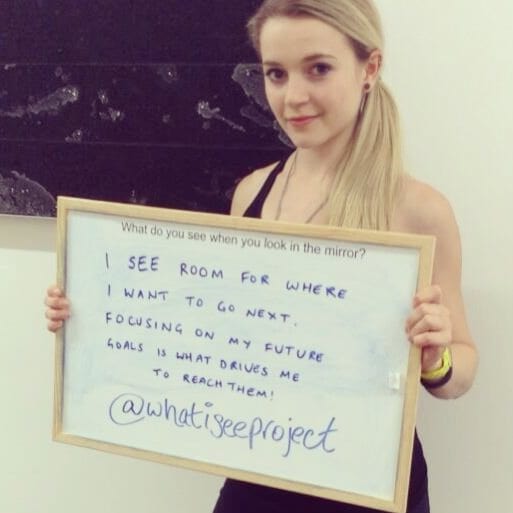 What do you see when you look in the mirror?
I SEE ROOM FOR WHERE
I WANT TO GO NEXT.
FOCUSING ON MY FUTURE
GOALS IS WHAT DRIVES ME
TO REACH THEM!
@whatiseeproject